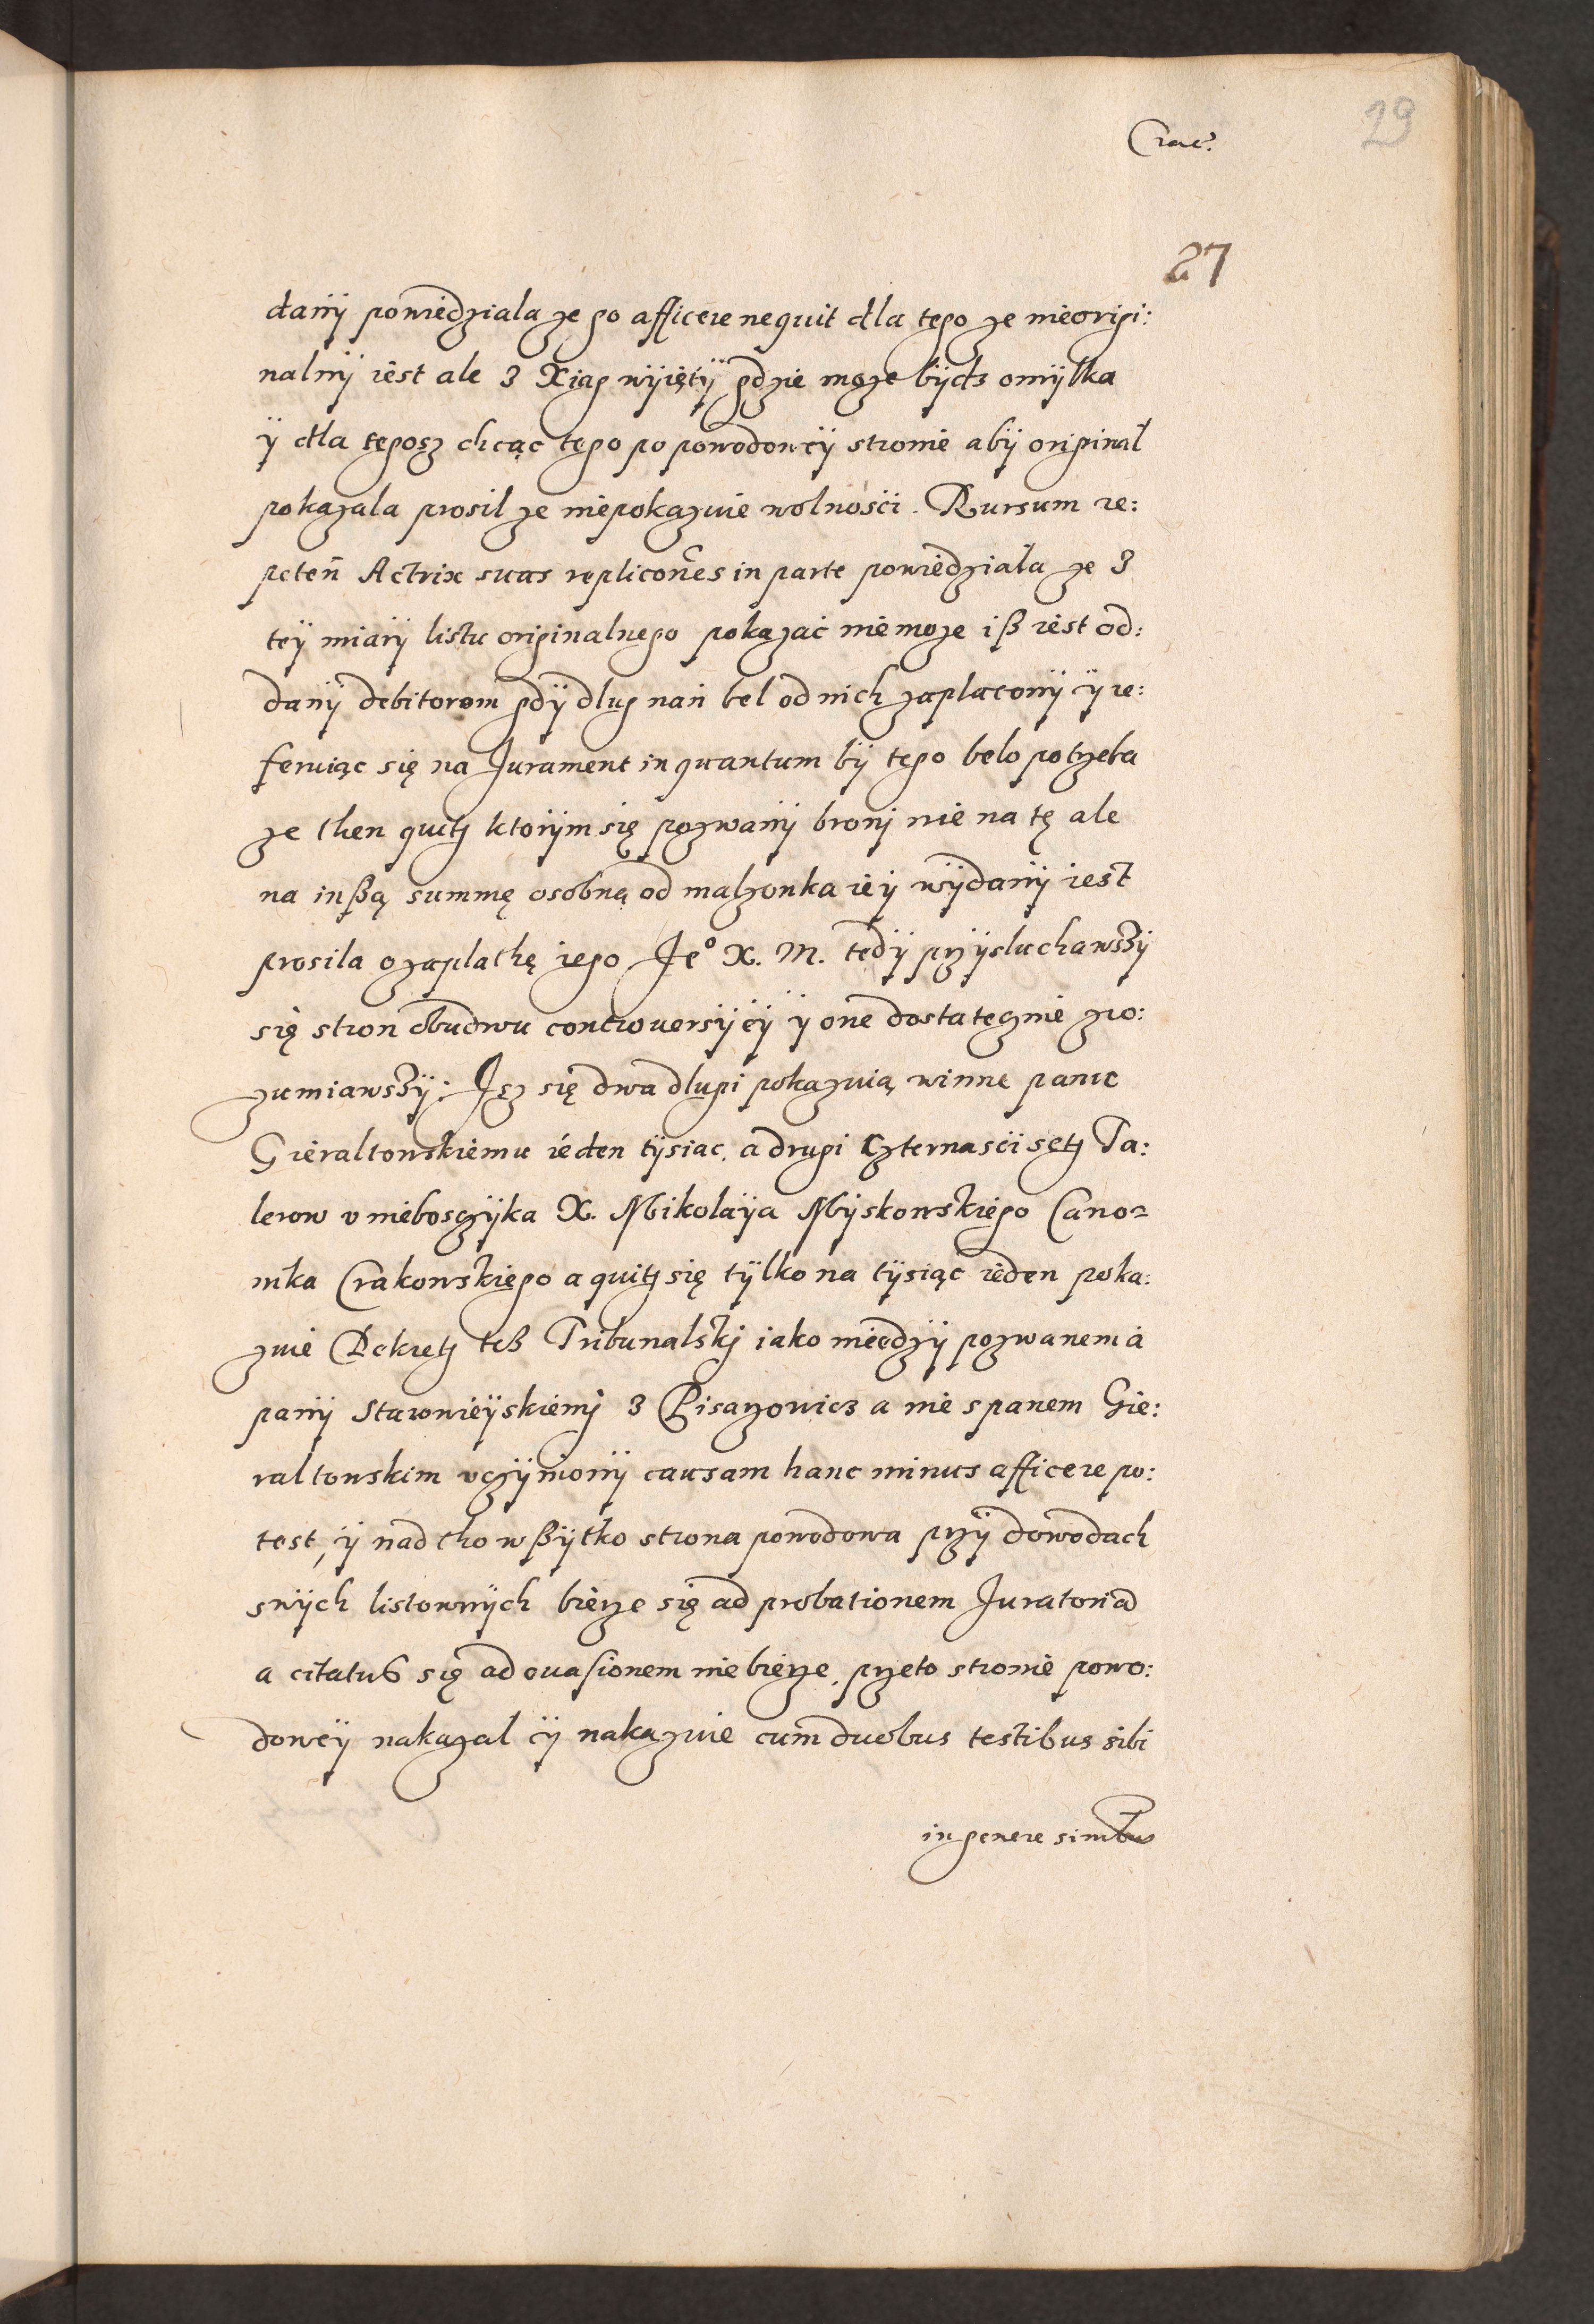 Crac:
29
27
danÿ powiedziala ze go afficere nequit dla tego ze nieorigi:
nalnÿ iest ale z Xiąg wÿiętÿ gdzie moze bÿdz omÿłka
ÿ dla tegosz chcąc tego po powodoweÿ stronie abÿ originał
pokazala prosil ze niepokazuie wolności. Rursum re:
peteñ Actrix suas replicões in parte powiedziała ze z
teÿ miarÿ listu originalnego pokazać niemoze iß iest od:
danÿ debitorom gdÿ dlug nań bel od nich zaplaconÿ ÿ re:
feruiąc się na Jurament inquantum bÿ tego belo potrzeba
ze then quitj ktorÿm się pozwanÿ bronj nie na tę ale
na inßą summę osobną od malzonka ieÿ wÿdanÿ iest
prosila o zaplathę iego Je° X. M. tedÿ przÿsluchawszÿ
się stron obudwu controuersÿeÿ ÿ one dostatecznie zro:
zumiawszÿ: Jsz się dwa dlugi pokazuią winne panu
Gieraltowskiemu ieden tÿsiac, a drugi Czternasci setj Ta:
lerow v nieboszczÿka X. Mikolaÿa Mÿskowskiego Cano=
nika Crakowskiego a quitj się tÿlko na tÿsiąc ieden poka:
zuie Dekretj teß Tribunalskj iako miedzÿ pozwanem a
panÿ Starowieÿskiemj z Pisarzowicz a nie s panem Gie:
raltowskim vczÿnionÿ causam hanc minus afficere po:
test, ÿ nad tho wßÿtko strona powodowa przÿ dowodach
swÿch listownÿch bierze się ad probationem Juratoriã
a citatus się ad euasionem nie bierze, przeto stronie powo:
doweÿ nakazal ÿ nakazuie cum duobus testibus sibi
in genere simibus